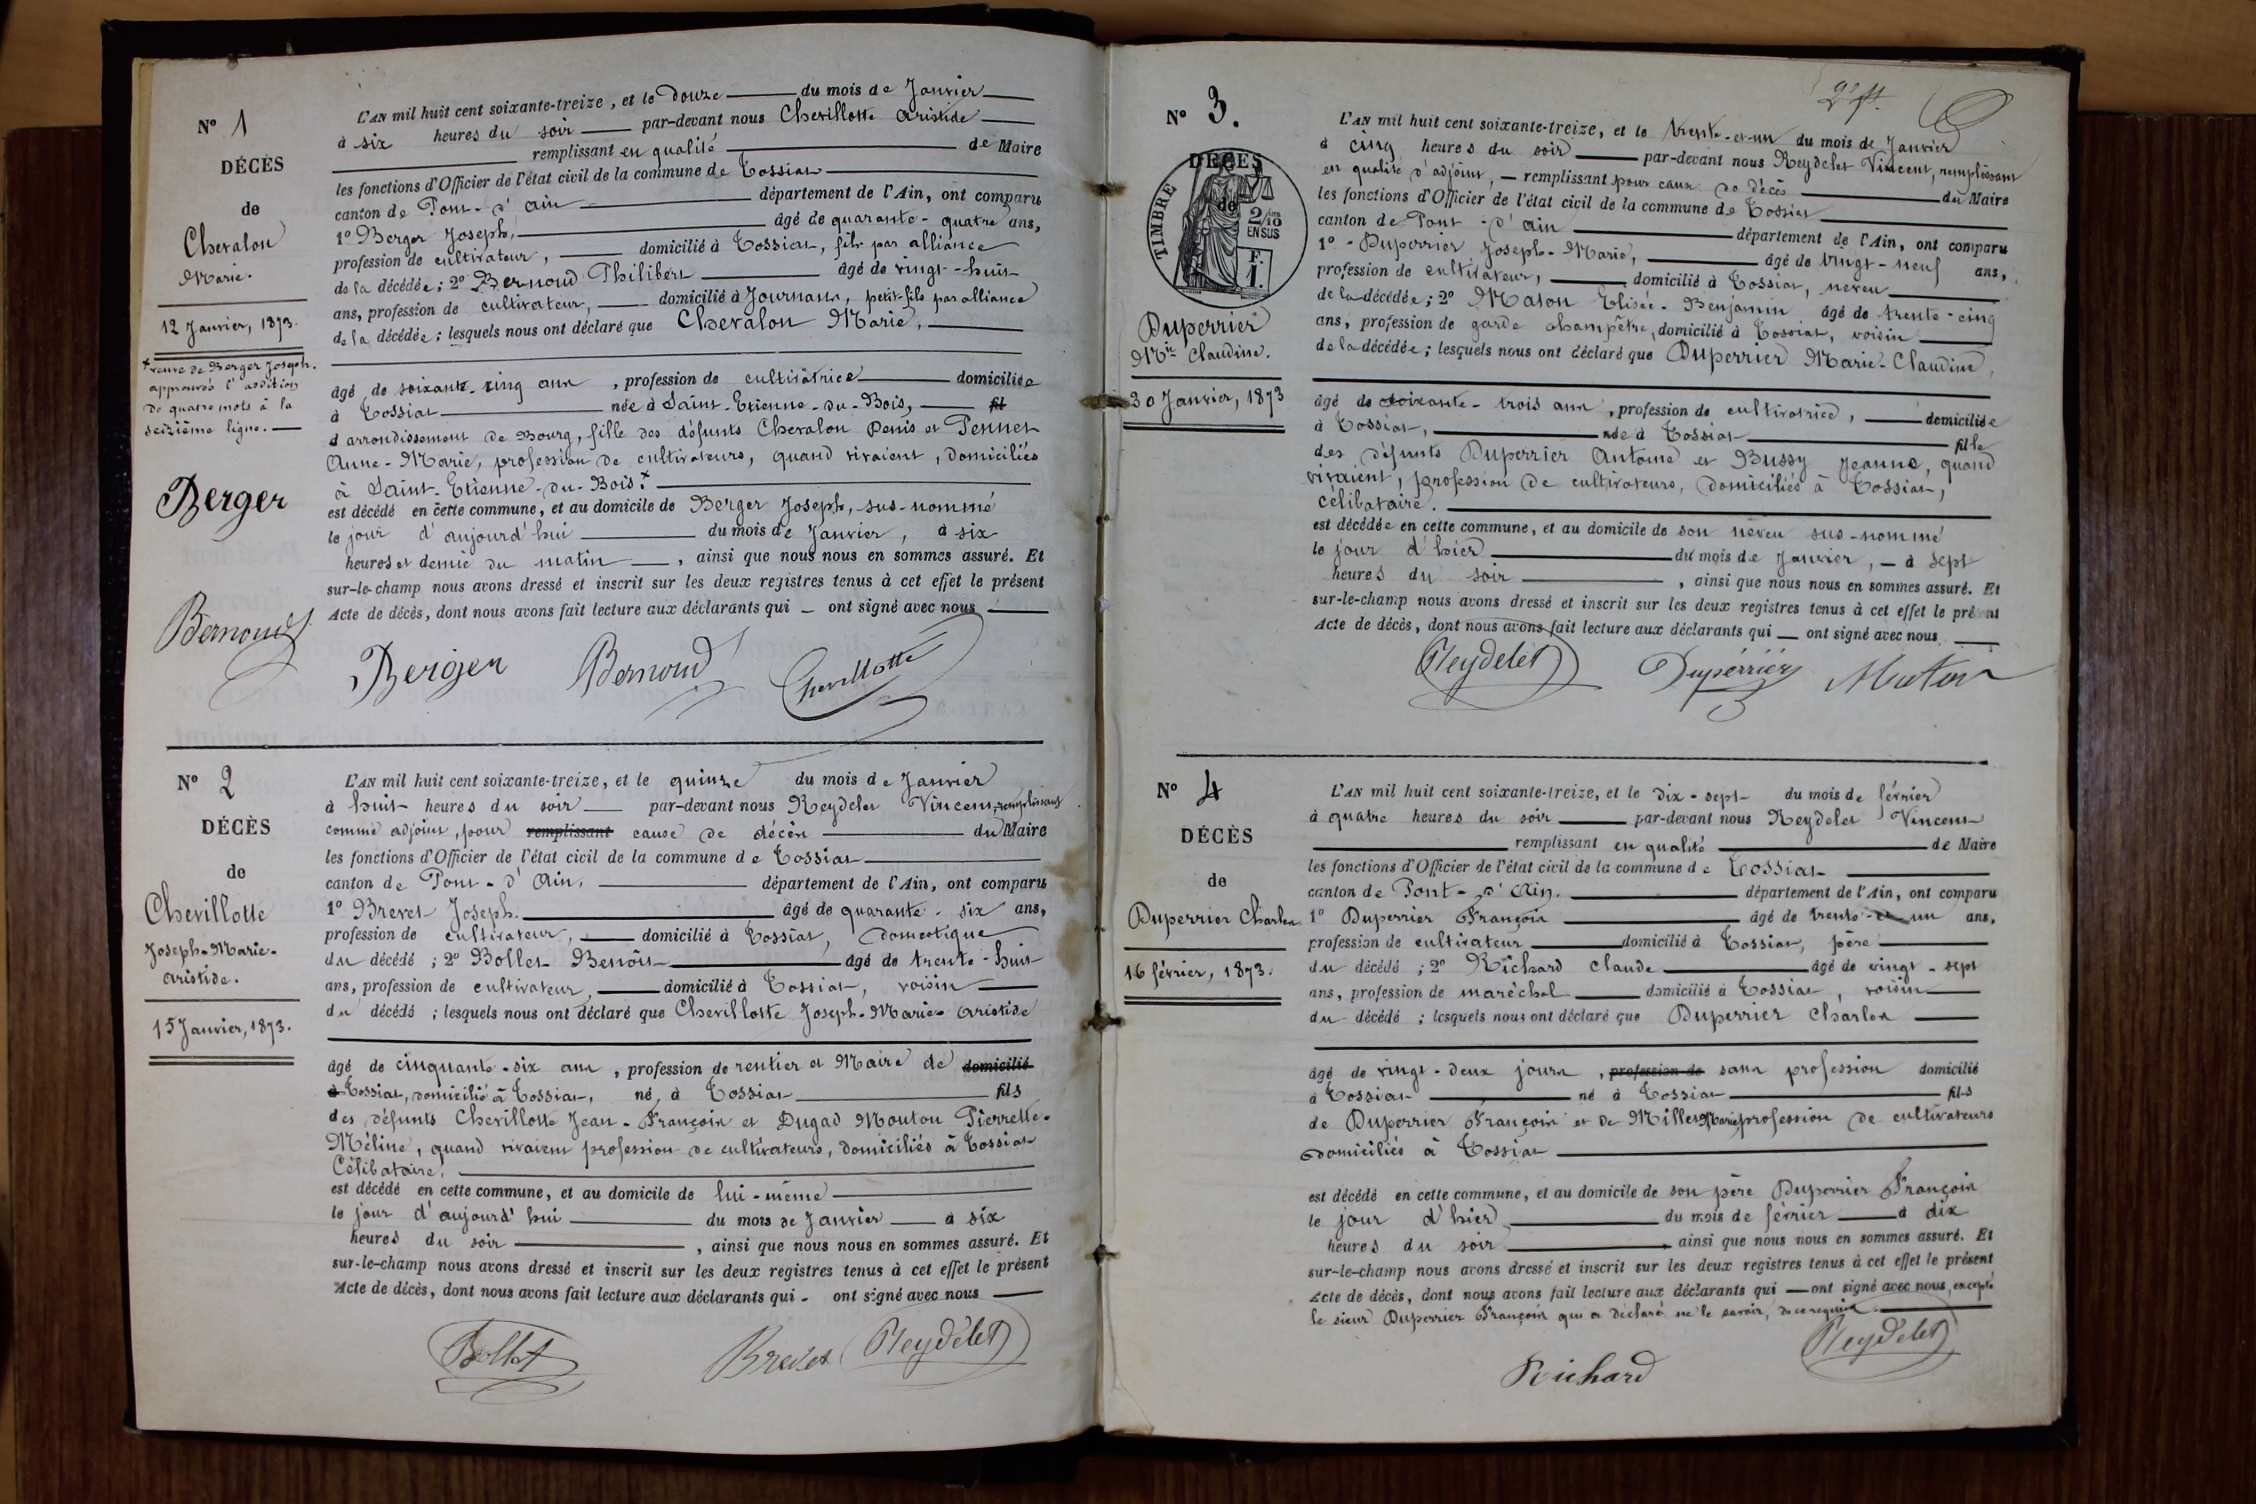 N° 1
DÉCÈS
de
Chevalon
Marie.
12 Janvier, 1873.
x veuve de Berger Joseph.
approuvé l'addition
de quatre mots à la
seizième ligne.
Berger
Bernoud
L'AN mil huit cent soixante-treize, et le douze du mois de Janvier
à six heures du soir par-devant nous Chevillotte Aristide
remplissant en qualité de Maire
les fonctions d'Officier de l'état civil de la commune de Tossiat
canton de Pont-d'Ain département de l'Ain, ont comparu
1° Berger Joseph, âgé de quarante-quatre ans,
profession de cultivateur, domicilié à Tossiat, fils par alliance
de la décédée; 2° Bernoud Philibert âgé de vingt-huit
ans, profession de cultivateur, domicilié à Journans, petit-fils par alliance
de la décédée; lesquels nous ont déclaré que Chevalon Marie,
âgé de soixante-cinq ans, profession de cultivatrice domiciliée
à Tossiat née à Saint-Etienne-du-Bois, fil
d'arrondissement de Bourg, fille des défunts Chevalon Denis et Pennet
Anne-Marie, profession de cultivateurs, quand vivaient, domiciliés
à Saint-Etienne-du-Bois. x
est décédé en cette commune, et au domicile de Berger Joseph, sus-nommé
le jour d'aujourd'hui du mois de Janvier, à six
heures et demie du matin, ainsi que nous nous en sommes assuré. Et
sur-le-champ nous avons dressé et inscrit sur les deux registres tenus à cet effet le présent
Acte de décès, dont nous avons fait lecture aux déclarants qui ont signé avec nous
Berger Bernoud Chevillotte
N° 2
DÉCÈS
de
Chevillotte
Joseph-Marie-
Aristide.
15 Janvier, 1873.
L'AN mil huit cent soixante-treize, et le quinze du mois de Janvier
à huit heures du soir par-devant nous Reydelet Vincent, remplissant
comme adjoint, pour remplissant cause de décès du Maire
les fonctions d'Officier de l'état civil de la commune de Tossiat
canton de Pont-d'Ain, département de l'Ain, ont comparu
1° Brevet Joseph. âgé de quarante-six ans,
profession de cultivateur, domicilié à Tossiat, domestique
du décédé; 2° Bollet Benoit âgé de trente-huit
ans, profession de cultivateur, domicilié à Tossiat, voisin
du décédé; lesquels nous ont déclaré que Chevillotte Joseph-Marie-Aristide
âgé de cinquante-six ans, profession de rentier et Maire de domicilié
à Tossiat, domicilié à Tossiat, né à Tossiat fils
des défunts Chevillotte Jean-François et Dugad Moutou Pierrette-
Méline, quand vivaient profession de cultivateurs, domiciliés à Tossiat
Célibataire.
est décédé en cette commune, et au domicile de lui-même
le jour d'aujourd'hui du mois de Janvier à six
heures du soir, ainsi que nous nous en sommes assuré. Et
sur-le-champ nous avons dressé et inscrit sur les deux registres tenus à cet effet le présent
Acte de décès, dont nous avons fait lecture aux déclarants qui ont signé avec nous
Bollet Brevet Reydelet
N° 3.
DÉCÈS
de
TIMBRE
2/10
EN SUS
F.
1.
Duperrier
Mie Claudine.
30 Janvier, 1873
L'AN mil huit cent soixante-treize, et le trente-et-un du mois de Janvier
à cinq heures du soir par-devant nous Reydelet Vincent, remplissant
en qualité d'adjoint, remplissant pour cause de décès du Maire
les fonctions d'Officier de l'état civil de la commune de Tossiat
canton de Pont-d'Ain département de l'Ain, ont comparu
1° Duperrier Joseph-Marie, âgé de vingt-neuf ans,
profession de cultivateur, domicilié à Tossiat, neveu
de la décédée; 2° Maton Elisée-Benjamin âgé de trente-cinq
ans, profession de garde champêtre, domicilié à Tossiat, voisin
de la décédée; lesquels nous ont déclaré que Duperrier Marie-Claudine,
âgé de soixante-trois ans, profession de cultivatrice, domiciliée
à Tossiat, née à Tossiat fille
des défunts Duperrier Antoine et Bussy Jeanne, quand
vivaient, profession de cultivateurs, domiciliés à Tossiat,
célibataire.
est décédée en cette commune, et au domicile de son neveu sus-nommé
le jour d'hier du mois de Janvier, à sept
heures du soir, ainsi que nous nous en sommes assuré. Et
sur-le-champ nous avons dressé et inscrit sur les deux registres tenus à cet effet le présent
Acte de décès, dont nous avons fait lecture aux déclarants qui ont signé avec nous
Reydelet Duperrier Maton
N° 4
DÉCÈS
de
Duperrier Charles
16 février, 1873.
L'AN mil huit cent soixante-treize, et le dix-sept du mois de février
à quatre heures du soir par-devant nous Reydelet Vincent
remplissant en qualité de Maire
les fonctions d'Officier de l'état civil de la commune de Tossiat
canton de Pont-d'Ain. département de l'Ain, ont comparu
1° Duperrier François âgé de trente-et-un ans,
profession de cultivateur domicilié à Tossiat, père
du décédé; 2° Richard Claude âgé de vingt-sept
ans, profession de maréchal domicilié à Tossiat, voisin
du décédé; lesquels nous ont déclaré que Duperrier Charles
âgé de vingt-deux jours, profession de sans profession domicilié
à Tossiat né à Tossiat fils
de Duperrier François et de Millet Marie, profession de cultivateurs
domiciliés à Tossiat
est décédé en cette commune, et au domicile de son père Duperrier François
le jour d'hier du mois de février à dix
heures du soir ainsi que nous nous en sommes assuré. Et
sur-le-champ nous avons dressé et inscrit sur les deux registres tenus à cet effet le présent
Acte de décès, dont nous avons fait lecture aux déclarants qui ont signé avec nous, excepté
le sieur Duperrier François qui a déclaré ne le savoir, de ce requis.
Richard Reydelet